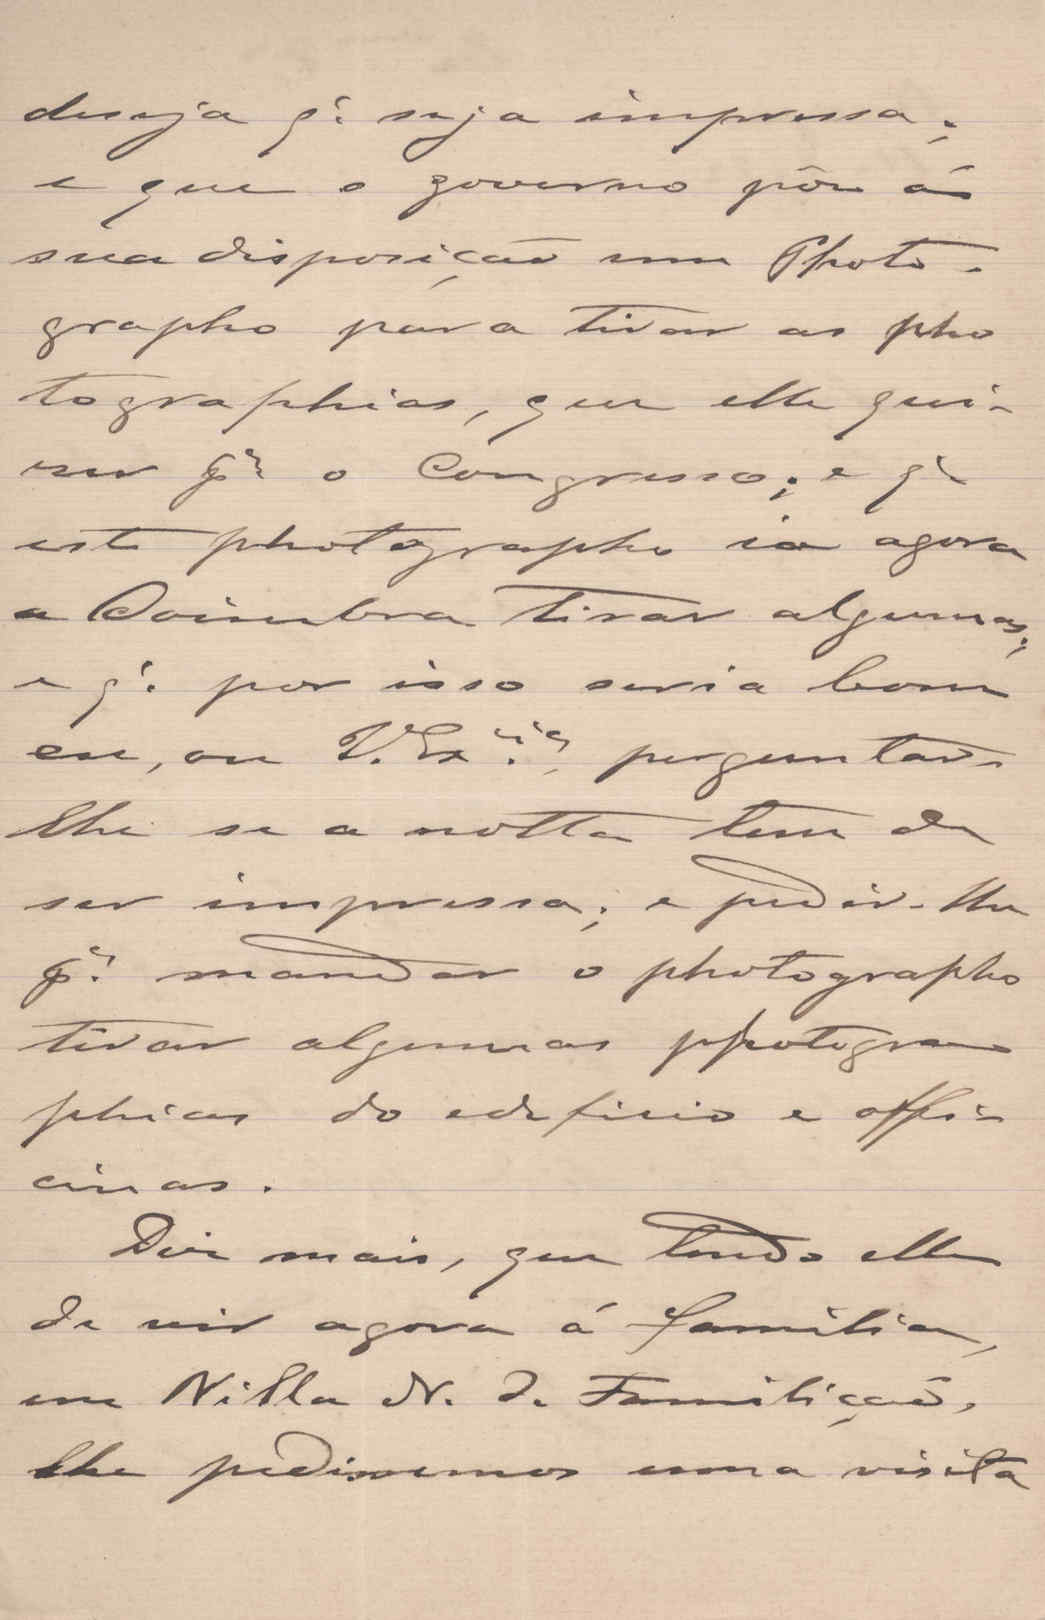 deseja q.' seja impressa;
e que o governo pôe ás
sua disposição um Photo-
grapho para tirar as pho
tographias, que elle qui-
zer p.ª o Congresso; e q.'
este photographo ia agora
a Coimbra tirar algumas;
e q.' por isso seria bom
eu, ou V. Ex.cia, perguntar-
lhe se a notta tem de
ser impressa; e pedir-lhe
p.ª mandar o photographo
tirar algumas photogra
phias do edeficio e offi-
cinas.
Diz mais, que tendo elle
de vir agora á familia,
em Villa N. de Familicção,
lhe pedissemos uma visita